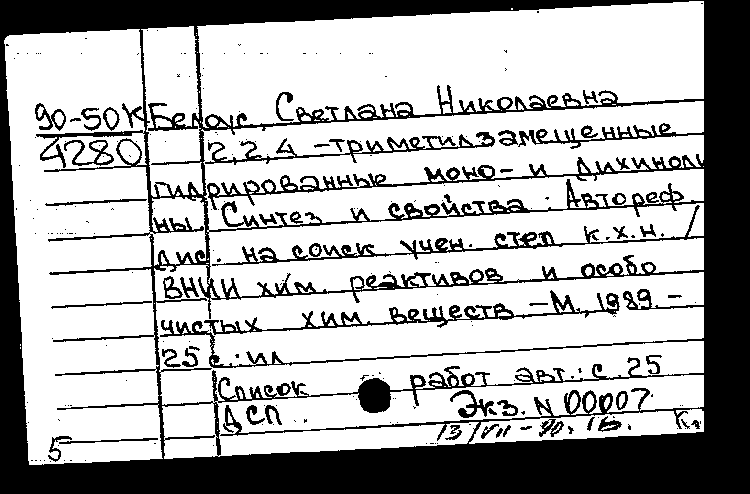 90-50К Белоус, Светлана Николаевна
4280 2,2,4-триметилзамещенные
гидрированные моно- и дихиноли
ны. Синтез и свойства : Автореф.
дис. на соиск учен. степ к.х.н. /
ВНИИ хим. реактивов и особо
чистых хим. веществ. -М., 1989. -
25 с.: ил
Список работ авт.: с. 25
ДСП. Экз. N 00007
5 13/VII-90. 1б. К.